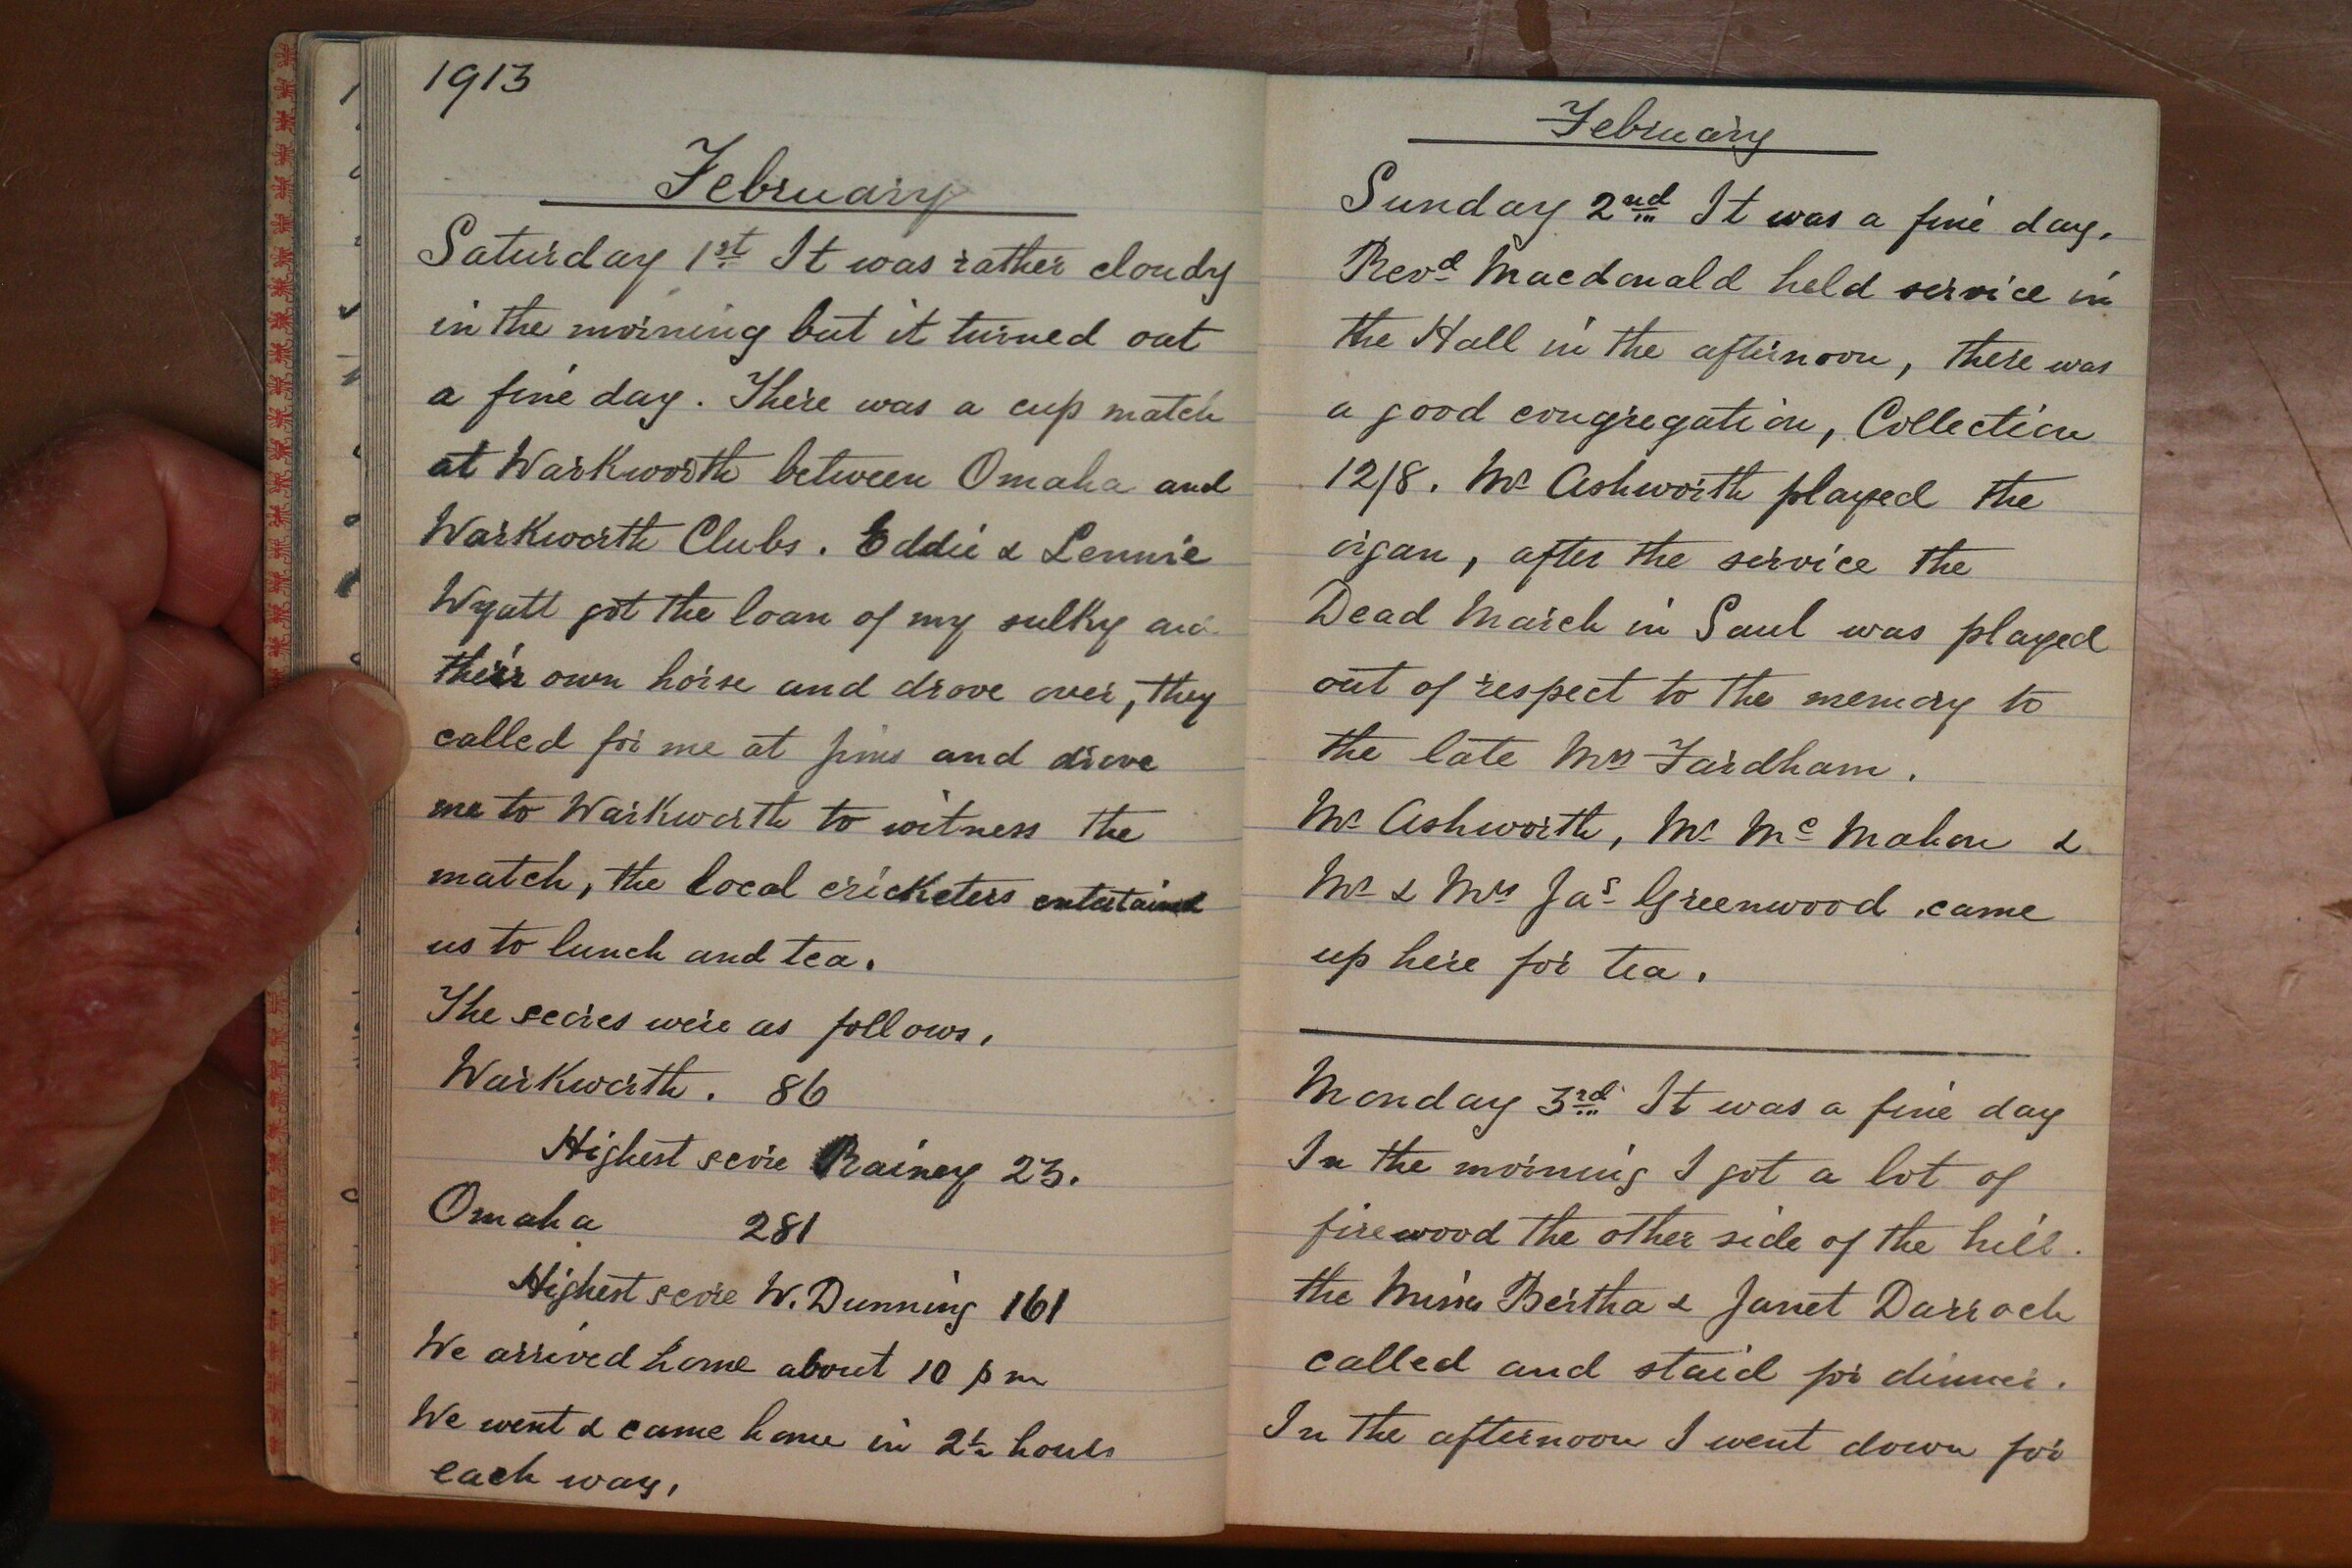 1913
February
Saturday 1st It was rather cloudy
in the morning but it turned out
a fine day. There was a cup match
at Warkworth between Omaha and
Warkworth Clubs. Eddie & Lennie
Wyatt got the loan of my sulky and
their own horse and drove over, they
called for me at Jims and drove
me to Warkworth to witness the
match, the local cricketers entertained
us to lunch and tea.
The scores were as follows,
Warkworth. 86
Highest score Rainey 23.
Omaha 281
Highest score W. Dunning 161
We arrived home about 10 pm
We went & came home in 2½ hours
each way,
February
Sunday 2nd It was a fine day.
Revd Macdonald held service in
the Hall in the afternoon, there was
a good congregation, Collection
12/8. Mr Ashworth played the
organ, after the service the
Dead March in Saul was played
out of respect to the memory to
the late Mrs Fardham.
Mr Ashworth, Mr Mc Mahon &
Mr & Mrs Jas Greenwood came
up here for tea.
Monday 3rd It was a fine day
In the morning I got a lot of
firewood the other side of the hill.
the Misses Bertha & Janet Darroch
called and staid for dinner.
In the afternoon I went down for